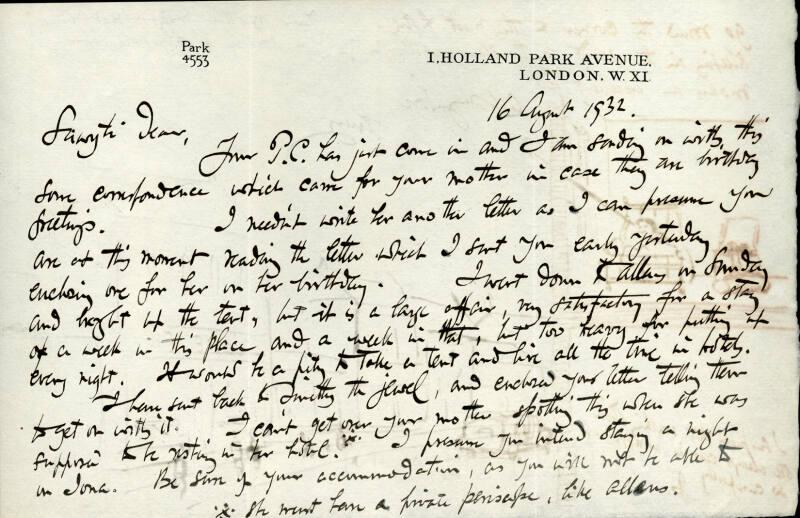 Park
4553
1, HOLLAND PARK AVENUE.
LONDON. W. XI
16 August 1932.
Dear,
Your P.C. has just come in and I am sending on with this
some correspondence which came for your mother in case they are birthday
greetings. I needn't write her another letter as I can presume you
are at this moment reading the letter which I sent you early yesterday
enclosing one for her on her birthday. I went down to Allens on Sunday
and bought up the tent, but it is a large affair, very satisfactory for a stay
of a week in this place and a week in that, but too heavy for putting up
every night. It would be a pity to take a tent and live all the time in hotels.
I have sent back to the Jewel, and enclosed your letter telling them
to get on with it. I can't get over your mother spotting this when she was
supposed to be resting in her hotel.※ I presume you intend staying a night
in Iona. Be sure of your accommodation, as you will not be able to
※ She must have a private periscope, like Allens.